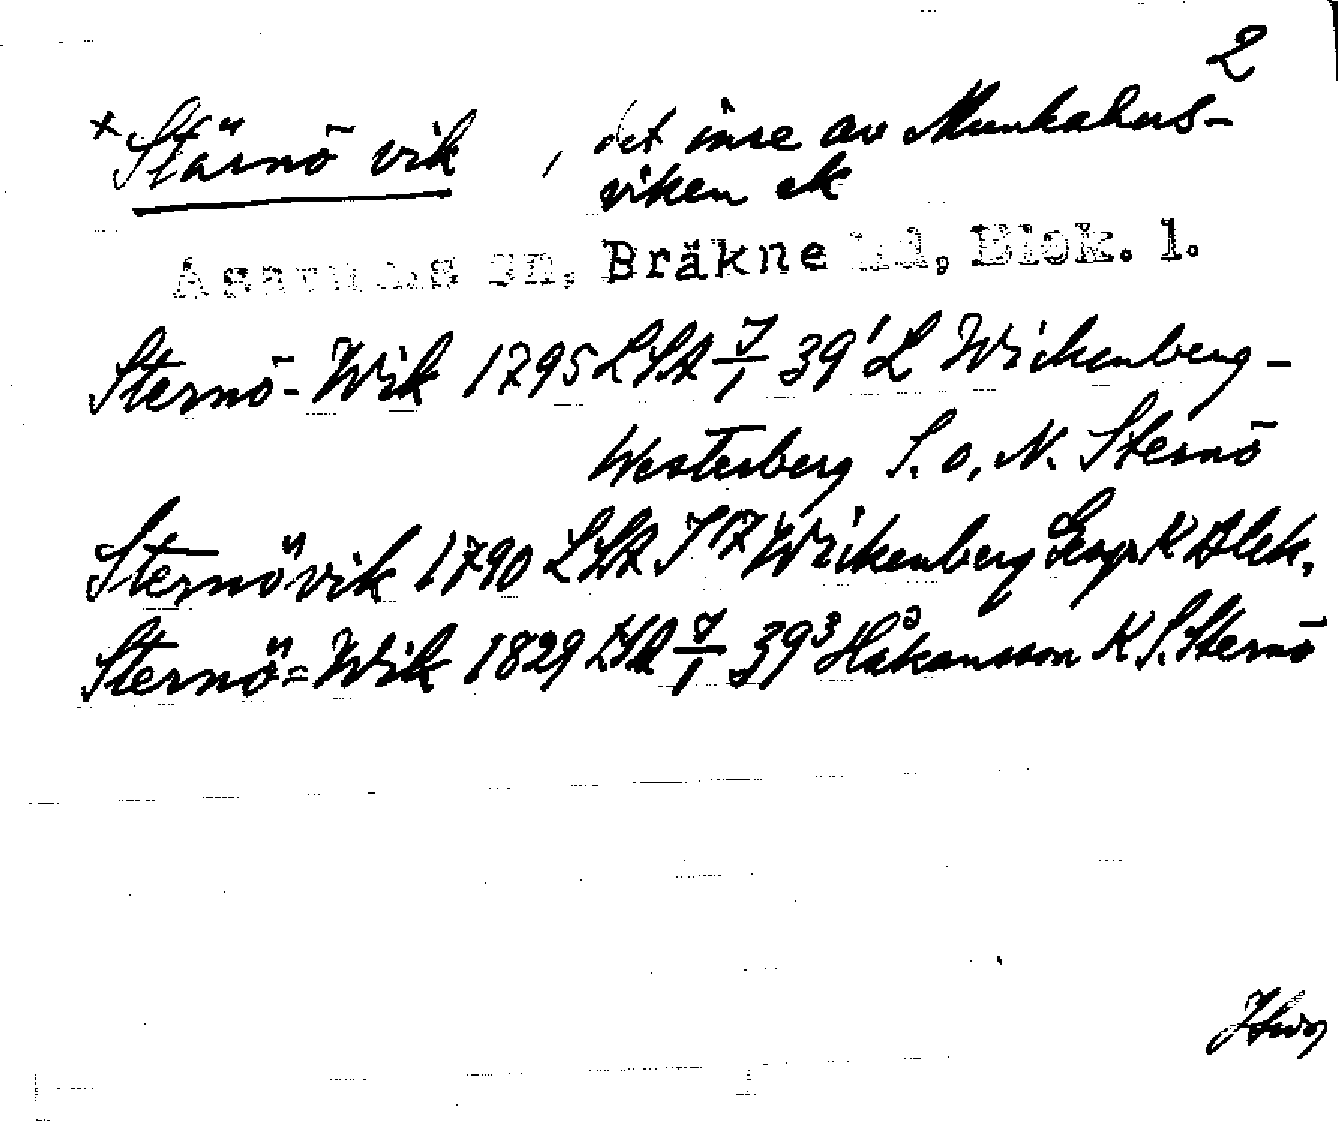 2
*Stärnö vik, det inre av Munkahus-
viken ek
Asarums sn, Bräkne hd, Blek. l.
Sternö-Wik 1795 LSA J/1 39¹ L Wickenberg-
Westerberg S. o, N. Sternö
Sternövik 1790 LSA J 17 Wickenberg Geogr K Blek.
Sternö=Wik 1829 LSA J/1 39³ Håkansson K S. Sternö